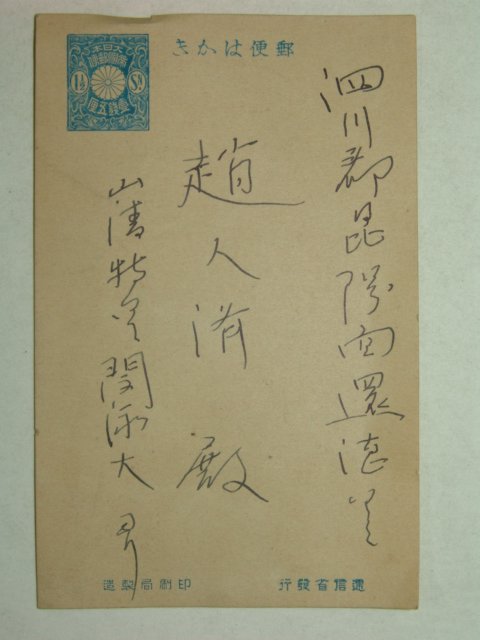 郵便はがき
大日本
帝國郵便
1½ Sn
壹錢五厘
泗川郡昆陽面還德里
趙人濟 殿
山淸特里
閔泳大
逓信省發行
印刷局製造